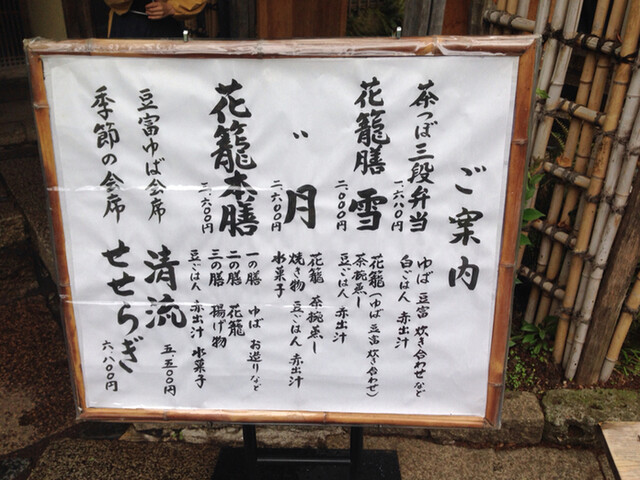 ご案内
茶つぼ三段弁当 一、六八〇円
ゆば 豆富 炊き合わせなど
白ごはん 赤出汁
花籠膳 雪 二、〇〇〇円
花籠(ゆば 豆富 炊き合わせ)
茶椀蒸し
豆ごはん 赤出汁
〃 月 二、六〇〇円
花籠 茶椀蒸し
焼き物 豆ごはん 赤出汁
水菓子
花籠本膳 三、六〇〇円
一の膳 ゆば お造りなど
二の膳 花籠
三の膳 揚げ物
豆ごはん 赤出汁 水菓子
豆富ゆば会席 清流 五、五〇〇円
季節の会席 せせらぎ 六、八〇〇円